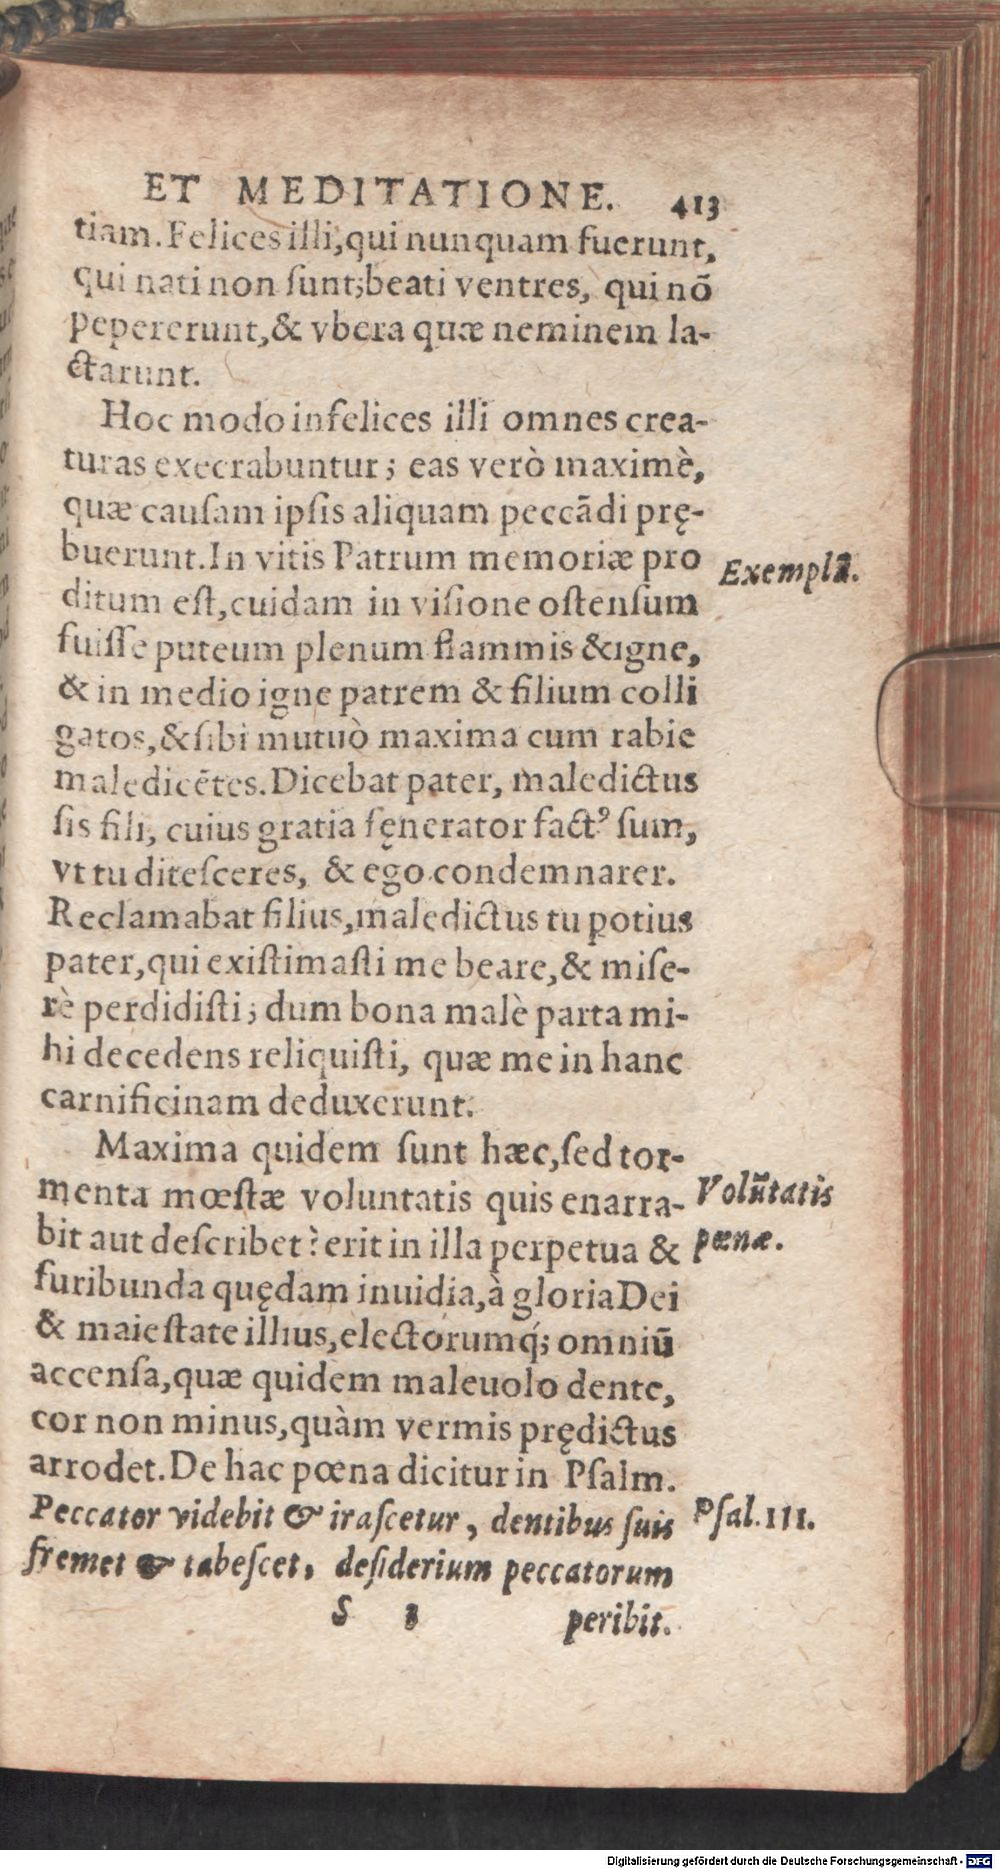 ET MEDITATIONE. 413
tiam. Felices illi, qui nunquam fuerunt,
qui nati non ſunt; beati ventres, qui nõ
pepererunt, & vbera quæ neminem la-
ctarunt.
Hoc modo infelices illi omnes crea-
turas execrabuntur; eas verò maximè,
quæ cauſam ipſis aliquam peccãdi prę-
buerunt. In vitis Patrum memoriæ pro
Exemplũ.
ditum eſt, cuidam in viſione oſtenſum
fuiſſe puteum plenum flammis & igne,
& in medio igne patrem & filium colli
gatos, & ſibi mutuò maxima cum rabie
maledicẽtes. Dicebat pater, maledictus
ſis fili, cuius gratia fęnerator factꝰ ſum,
vt tu diteſceres, & ego condemnarer.
Reclamabat filius, maledictus tu potius
pater, qui exiſtimaſti me beare, & miſe-
rè perdidiſti; dum bona malè parta mi-
hi decedens reliquiſti, quæ me in hanc
carnificinam deduxerunt.
Maxima quidem ſunt hæc, ſed tor-
menta mœſtæ voluntatis quis enarra-
Volũtatis
bit aut deſcribet? erit in illa perpetua &
pœnæ.
furibunda quędam inuidia, à gloria Dei
& maieſtate illius, electorumq́; omniũ
accenſa, quæ quidem maleuolo dente,
cor non minus, quàm vermis prędictus
arrodet. De hac pœna dicitur in Pſalm.
Peccator videbit & iraſcetur, dentibus ſuis
Pſal. 111.
fremet & tabeſcet, deſiderium peccatorum
S 3 peribit.
Digitalisierung gefördert durch die Deutsche Forschungsgemeinschaft - DFG